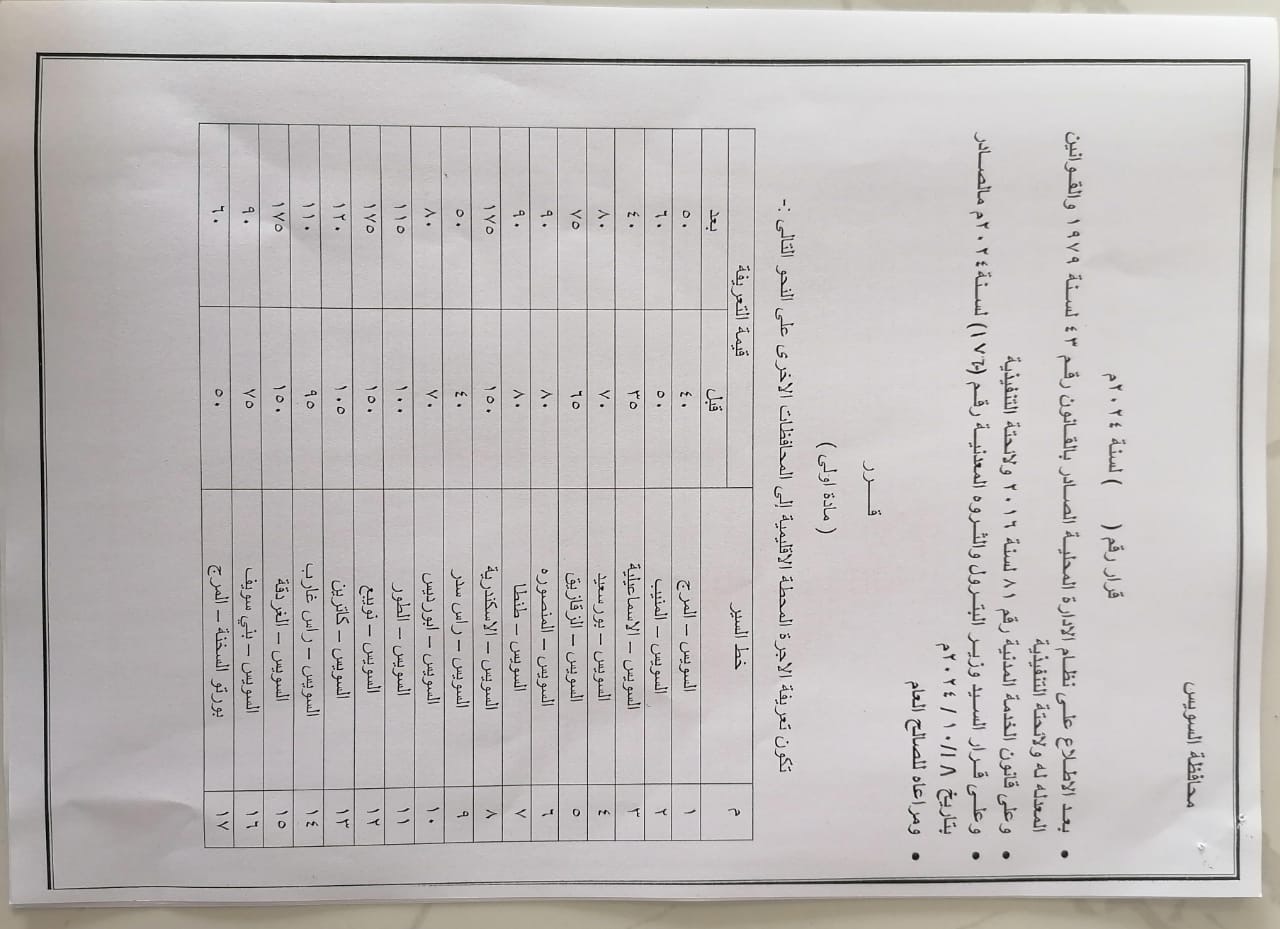 محافظة السويس
قرار رقم (     ) لسنة ٢٠٢٤م
• بعد الاطلاع على نظام الادارة المحلية الصادر بالقانون رقم ٤٣ لسنة ١٩٧٩ والقوانين
المعدله له ولائحتة التنفيذية
• وعلى قانون الخدمة المدنية رقم ٨١ لسنة ٢٠١٦ ولائحتة التنفيذية
• وعلى قرار السيد وزير البترول والثروه المعدنية رقم (١٧٦) لسنة٢٠٢٤م مالصادر
بتاريخ ١٠/١٨ / ٢٠٢٤م
• ومراعاه للصالح العام
قـــرر
( مادة اولى )
تكون تعريفة الاجرة المحطة الاقليمية إلى المحافظات الاخرى على النحو التالى :-
م خط السير قيمة التعريفة
قبل بعد
١ السويس – المرج ٤٠ ٥٠
٢ السويس – المنيب ٥٠ ٦٠
٣ السويس – الاسماعيلية ٣٥ ٤٠
٤ السويس – بورسعيد ٧٠ ٨٠
٥ السويس – الزقازيق ٦٥ ٧٥
٦ السويس – المنصوره ٨٠ ٩٠
٧ السويس – طنطا ٨٠ ٩٠
٨ السويس – الاسكندرية ١٥٠ ١٧٥
٩ السويس – راس سدر ٤٠ ٥٠
١٠ السويس – ابورديس ٧٠ ٨٠
١١ السويس – الطور ١٠٠ ١١٥
١٢ السويس – نويبع ١٥٠ ١٧٥
١٣ السويس – كاترين ١٠٥ ١٢٠
١٤ السويس – راس غارب ٩٥ ١١٠
١٥ السويس – الغردقة ١٥٠ ١٧٥
١٦ السويس – بني سويف ٧٥ ٩٠
١٧ بورتو السخنة – المرج ٥٠ ٦٠